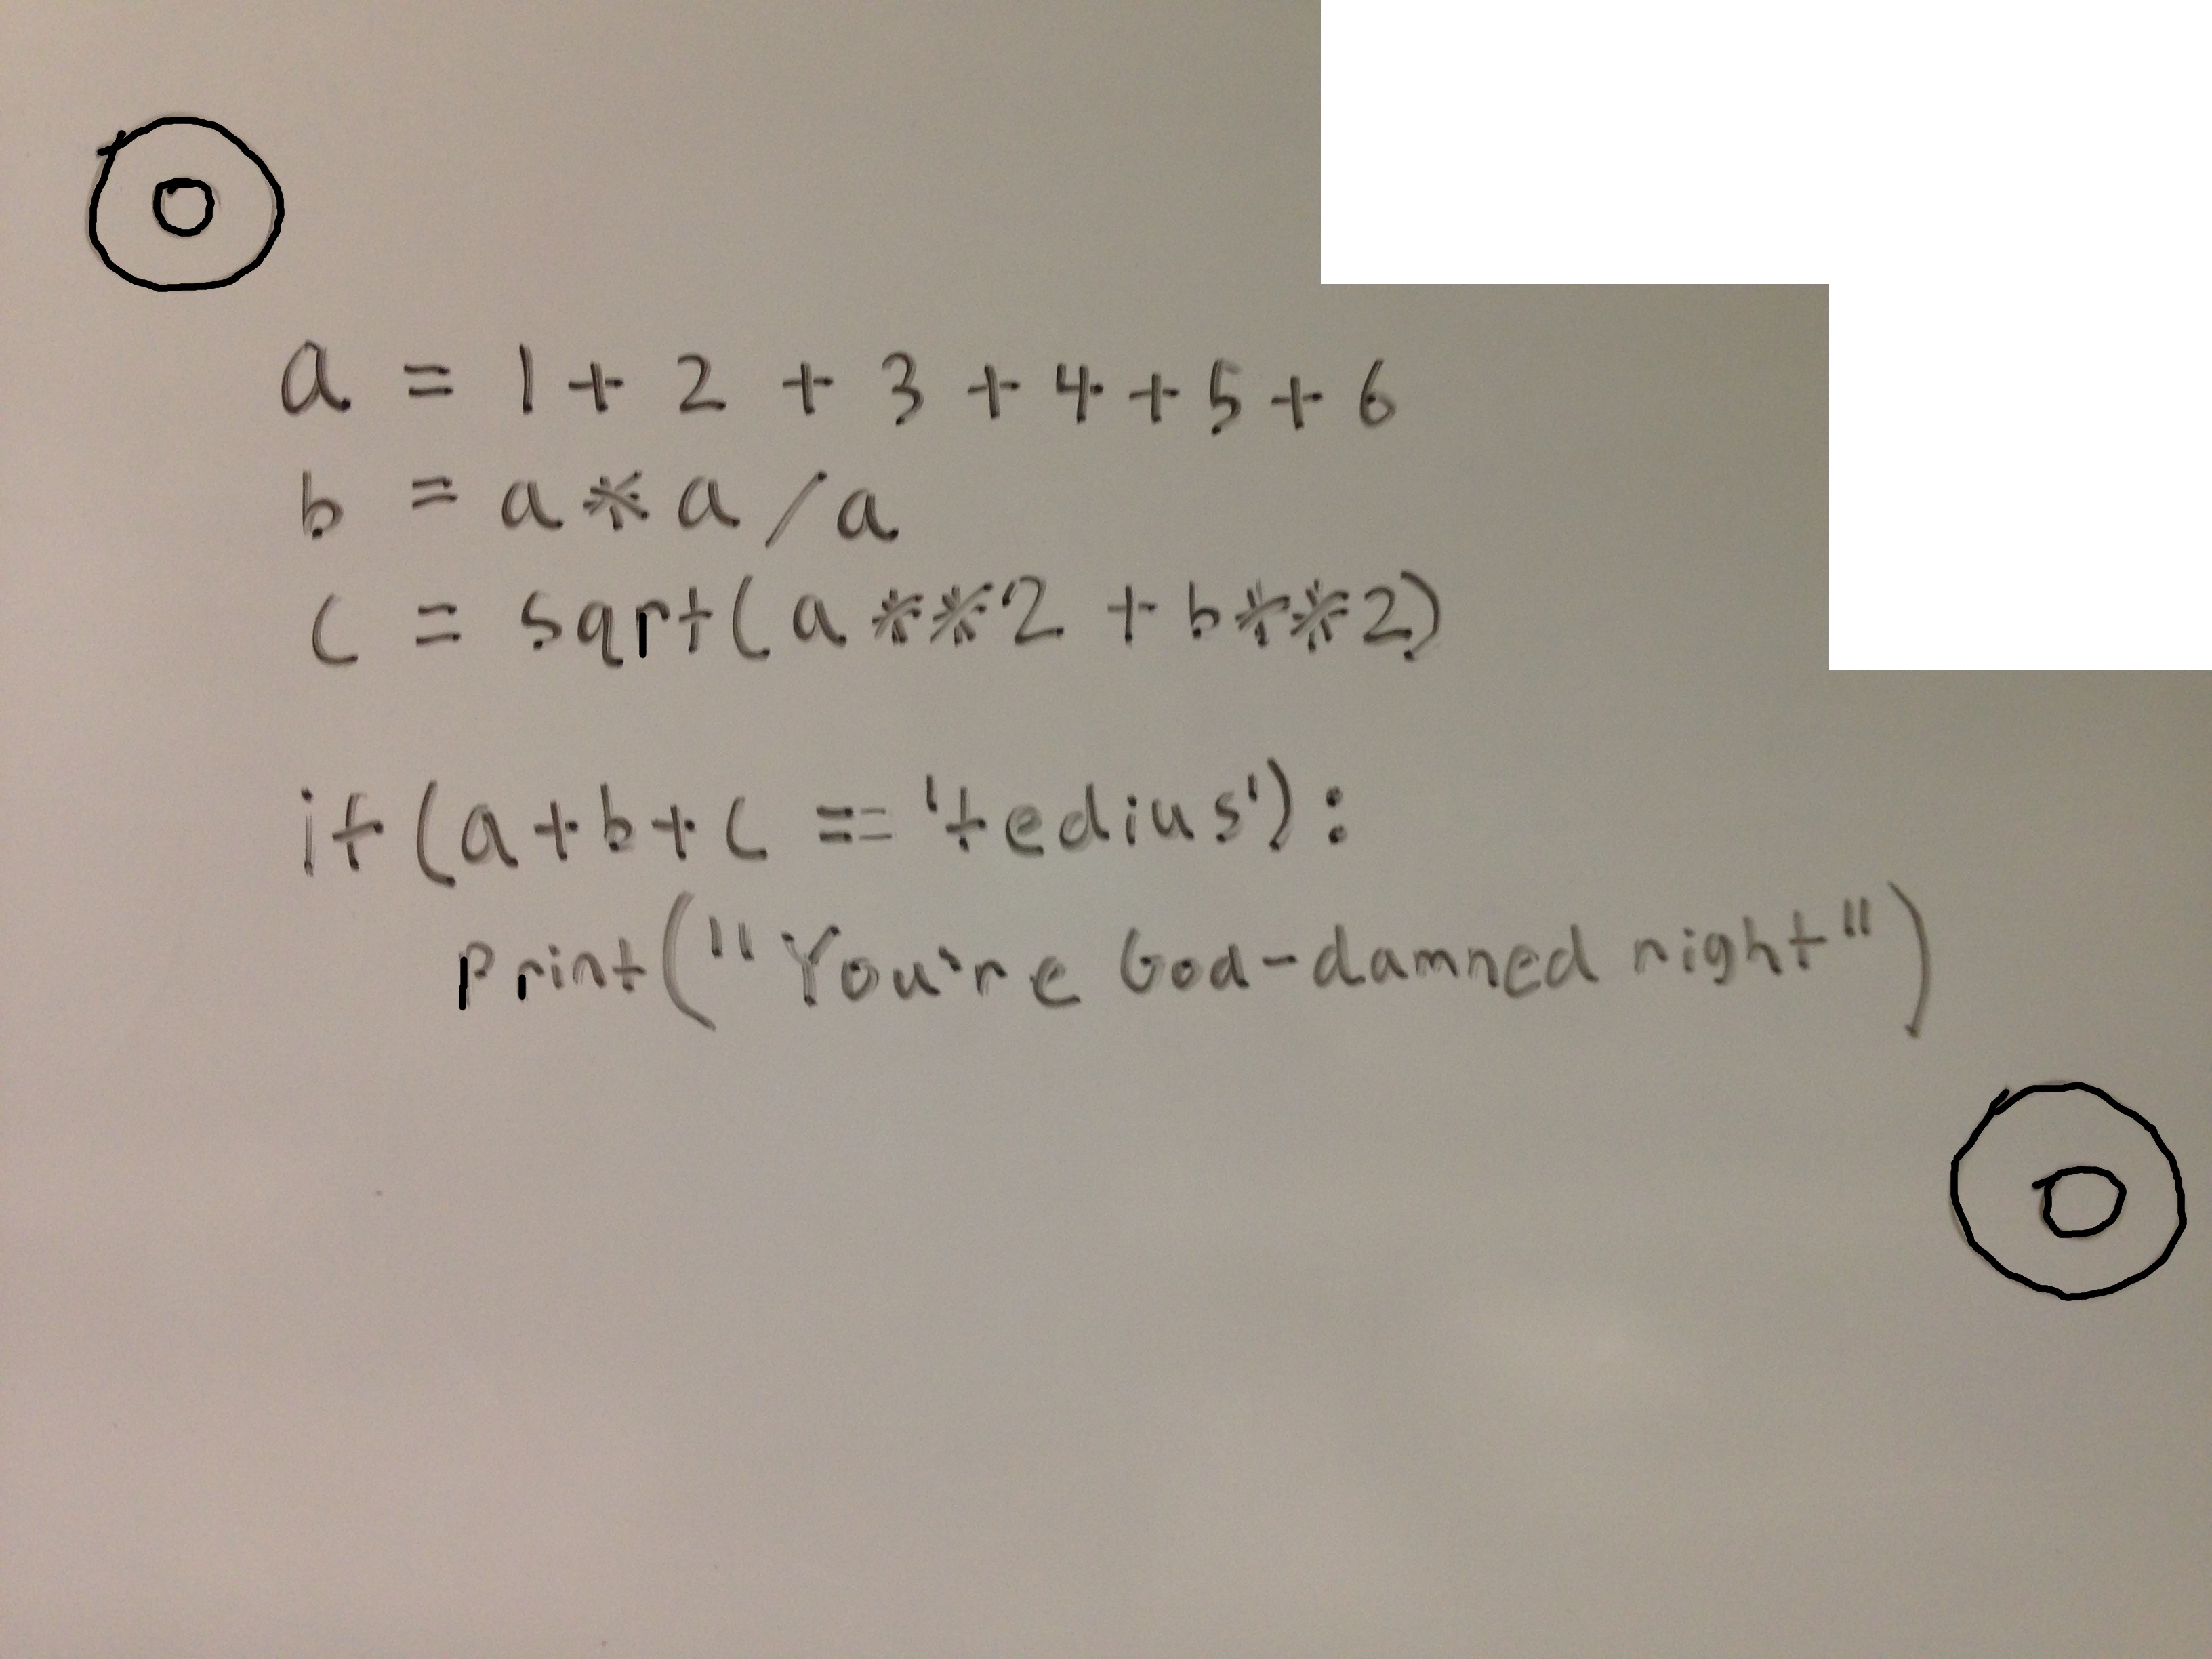 a = 1 + 2 + 3 + 4 + 5 + 6
b = a * a / a
c = sqrt(a**2 + b**2)
if (a+b+c == 'tedius'):
print("You're God-damned right")